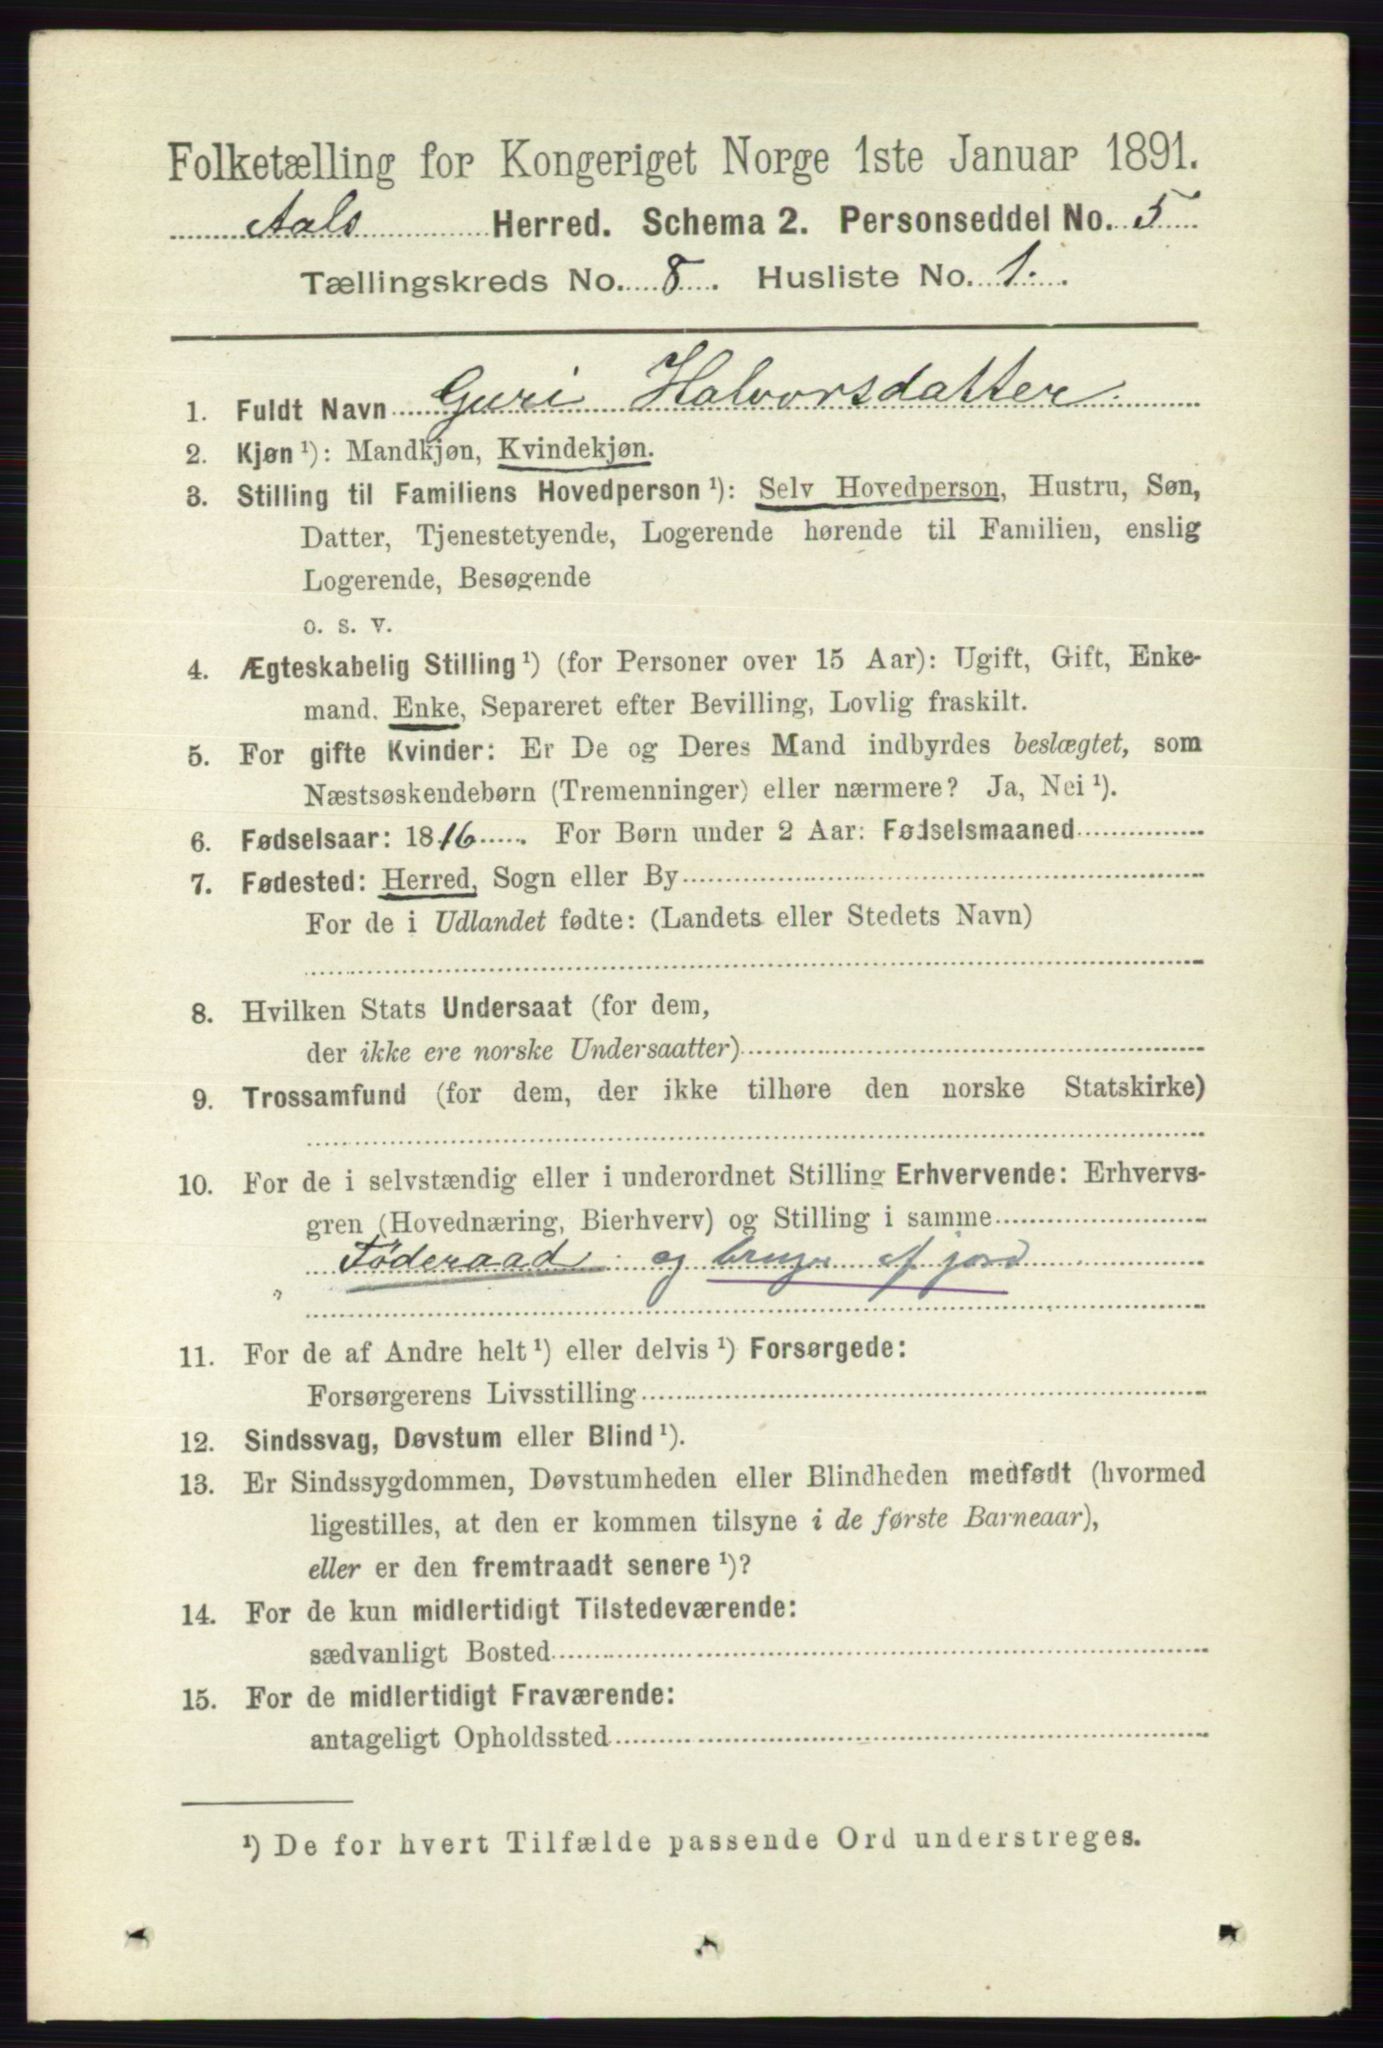 Folketælling for Kongeriget Norge 1ste Januar 1891.
Aals Herred. Schema 2. Personseddel No. 5
Tællingskreds No. 8. Husliste No. 1.
1. Fuldt Navn Guri Halvorsdatter.
2. Kjøn ¹): Mandkjøn, Kvindekjøn.
3. Stilling til Familiens Hovedperson ¹): Selv Hovedperson, Hustru, Søn,
Datter, Tjenestetyende, Logerende hørende til Familien, enslig
Logerende, Besøgende
o. s. v.
4. Ægteskabelig Stilling ¹) (for Personer over 15 Aar): Ugift, Gift, Enke-
mand, Enke, Separeret efter Bevilling, Lovlig fraskilt.
5. For gifte Kvinder: Er De og Deres Mand indbyrdes beslægtet, som
Næstsøskendebørn (Tremenninger) eller nærmere? Ja, Nei ¹).
6. Fødselsaar: 1816. For Børn under 2 Aar: Fødselsmaaned
7. Fødested: Herred, Sogn eller By
For de i Udlandet fødte: (Landets eller Stedets Navn)
8. Hvilken Stats Undersaat (for dem,
der ikke ere norske Undersaatter)
9. Trossamfund (for dem, der ikke tilhøre den norske Statskirke)
10. For de i selvstændig eller i underordnet Stilling Erhvervende: Erhvervs-
gren (Hovednæring, Bierhverv) og Stilling i samme
Föderaad og bruger af jord
11. For de af Andre helt ¹) eller delvis ¹) Forsørgede:
Forsørgerens Livsstilling
12. Sindssvag, Døvstum eller Blind ¹).
13. Er Sindssygdommen, Døvstumheden eller Blindheden medfødt (hvormed
ligestilles, at den er kommen tilsyne i de første Barneaar),
eller er den fremtraadt senere ¹)?
14. For de kun midlertidigt Tilstedeværende:
sædvanligt Bosted
15. For de midlertidigt Fraværende:
antageligt Opholdssted
¹) De for hvert Tilfælde passende Ord understreges.